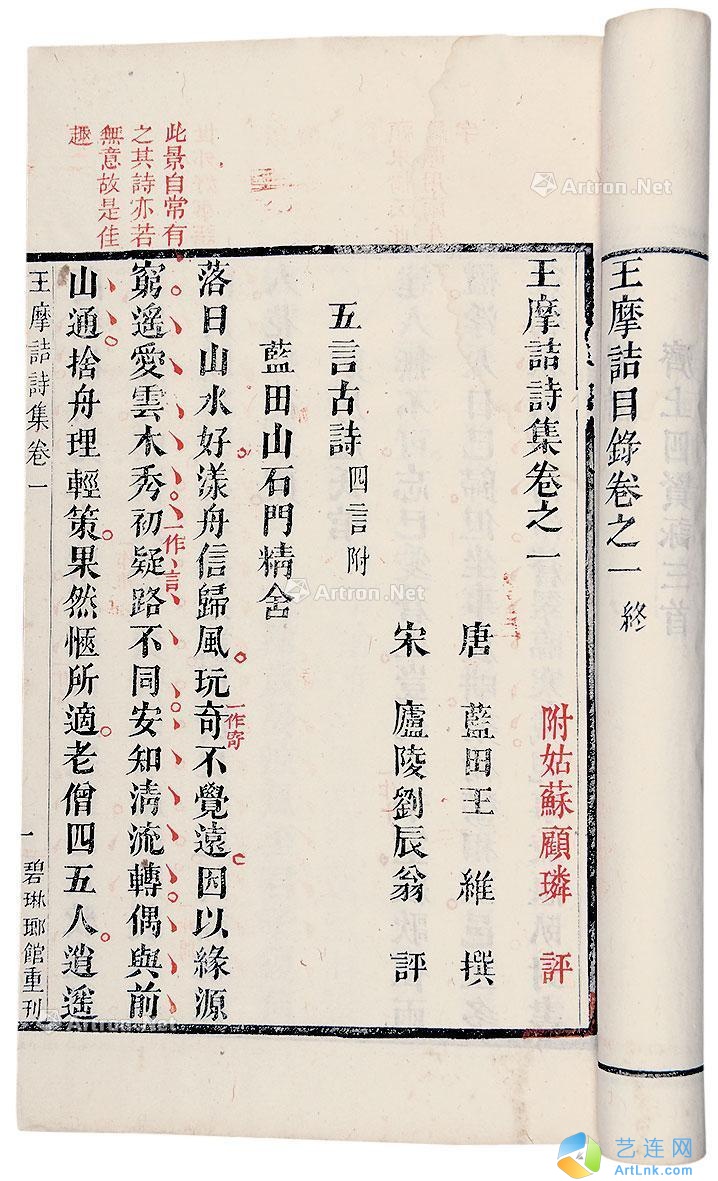 王摩詰目錄卷之一 終
王摩詰詩集卷之一
附姑蘇顧璘 評
唐 藍田王 維 撰
宋 廬陵劉辰翁 評
五言古詩 四言附
藍田山石門精舍
落日山水好漾舟信歸風玩奇一作寄不覺遠因以緣源
窮遙愛雲木秀一作言初疑路不同安知清流轉偶與前
山通捨舟理輕策果然愜所適老僧四五人逍遙
此景自常有
之其詩亦若
無意故是佳
趣
王摩詰詩集卷一
一 碧琳瑯館重刊
Artron.Net
Artron.Net
Artron.Net
Artron.Net
艺连网
ArtLnk.com